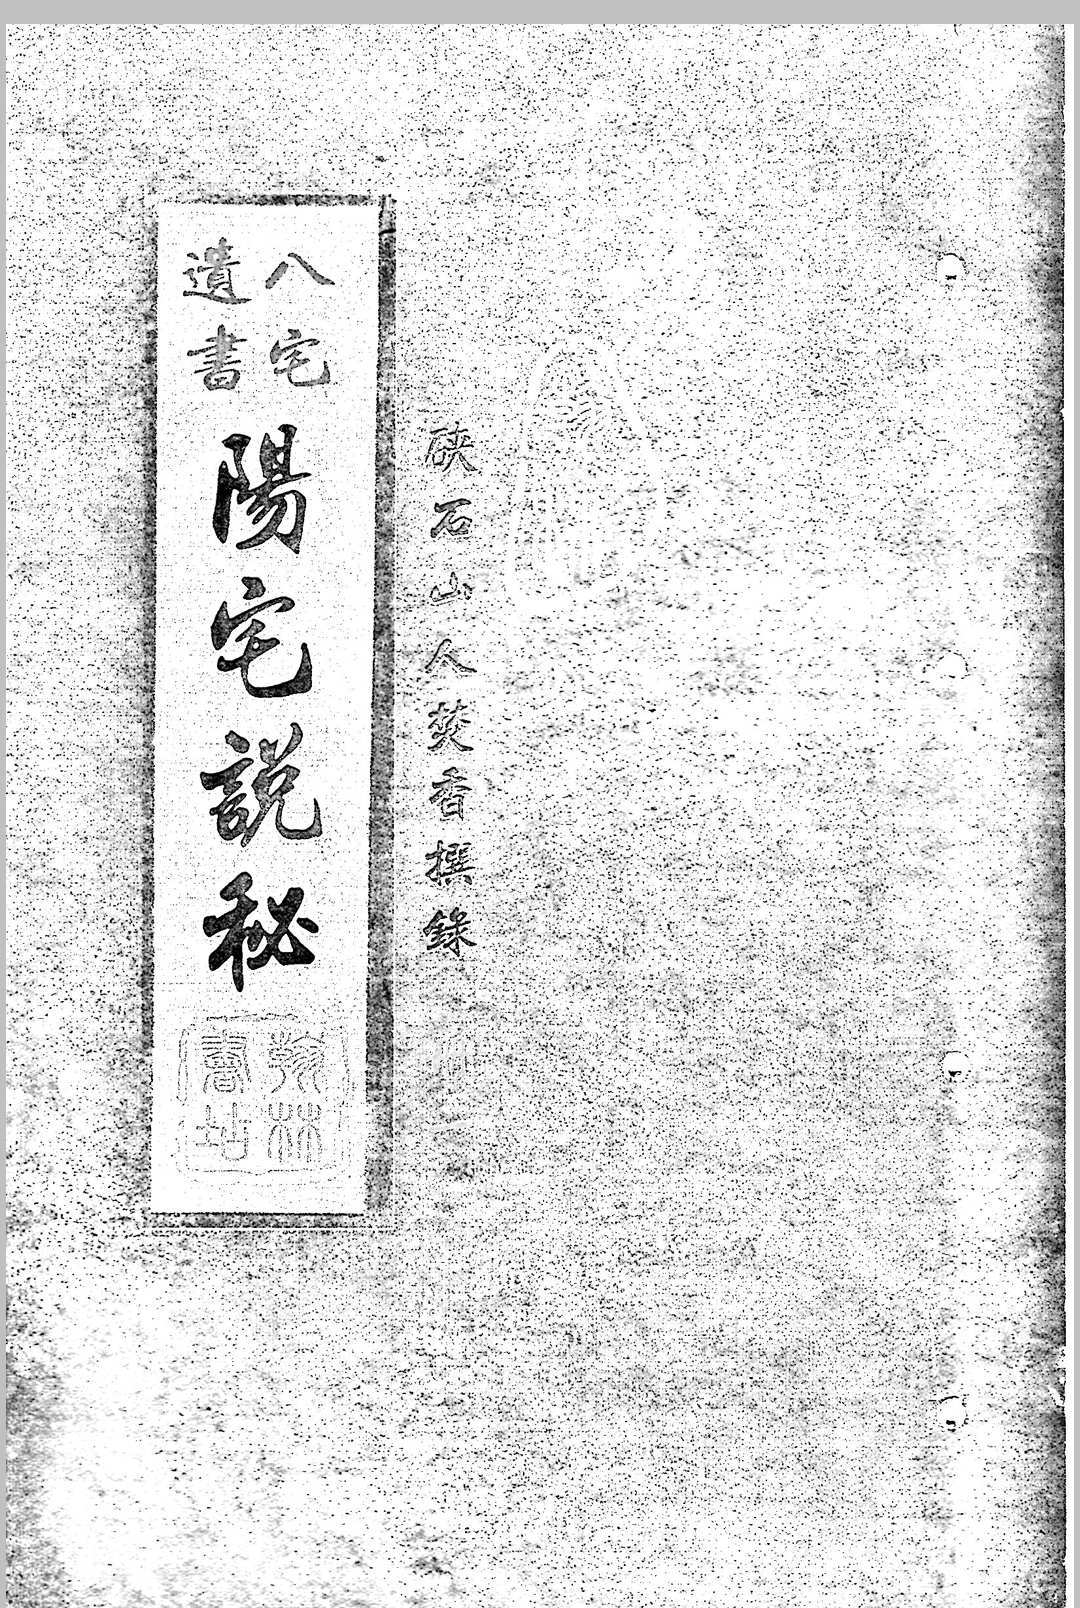 硤石山人焚香撰錄
八宅
遺書
陽宅說秘
翰林
書坊